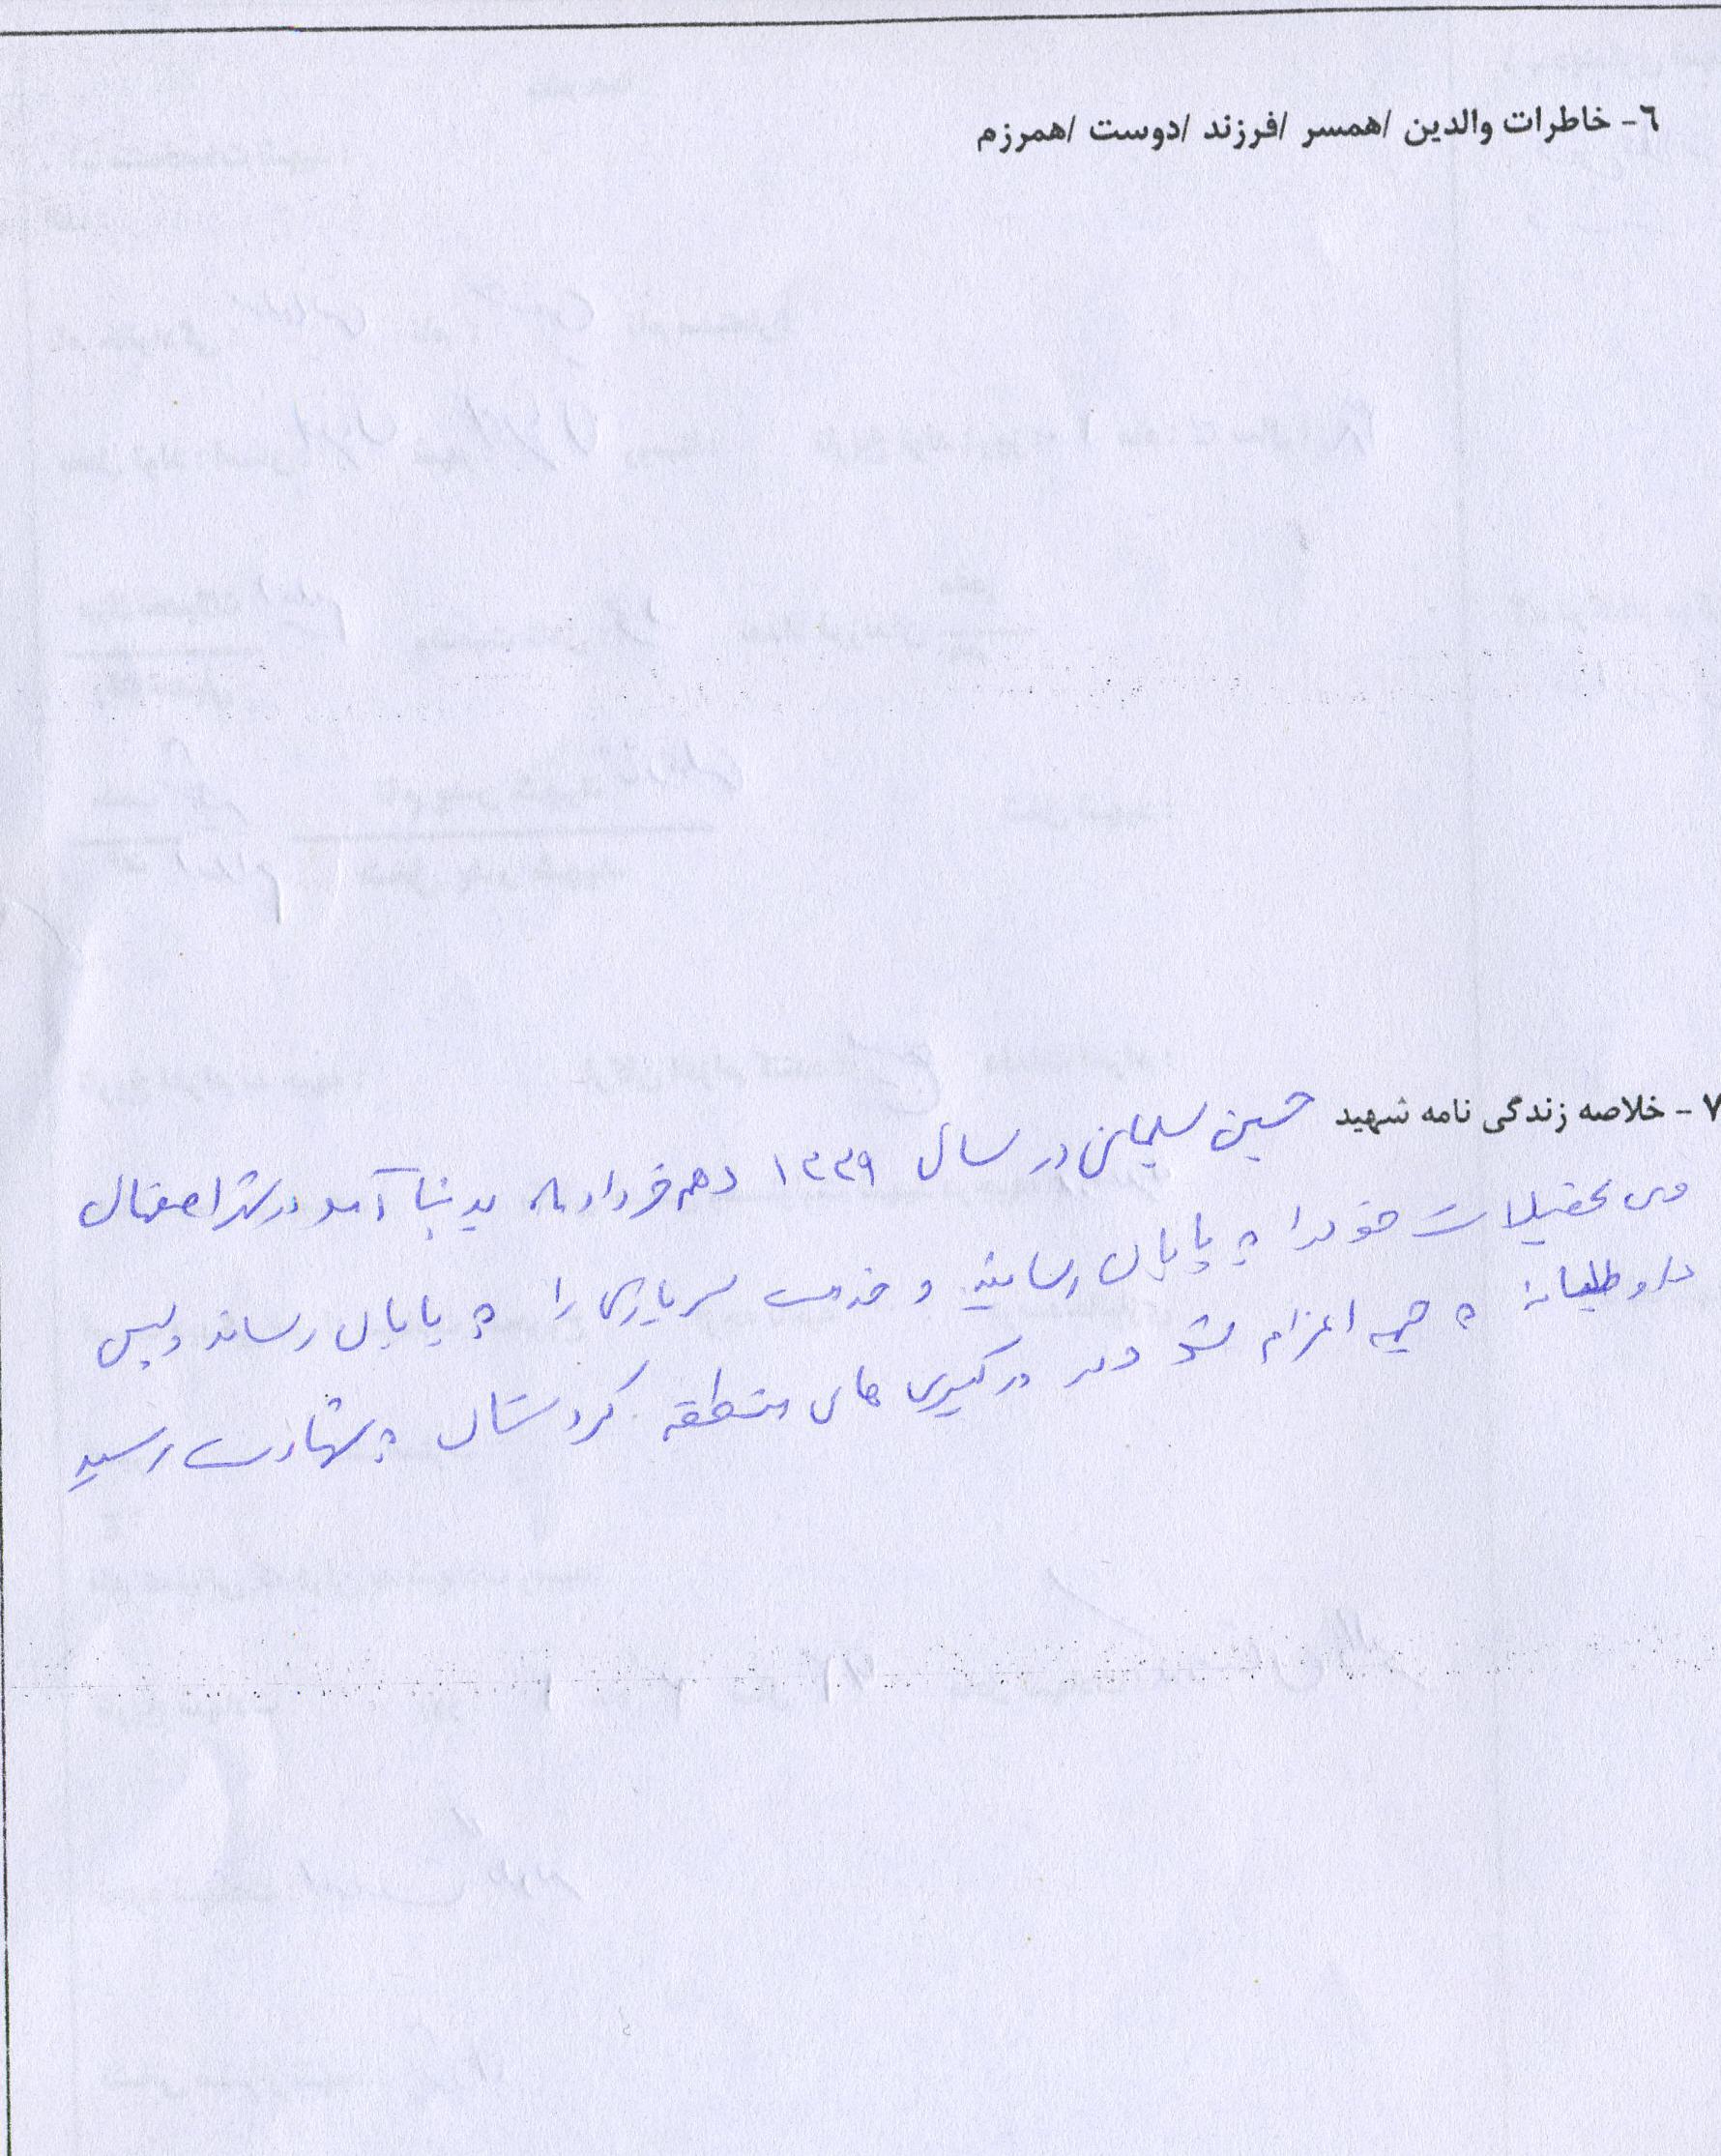 ٦- خاطرات والدین /همسر /فرزند /دوست /همرزم
۷- خلاصه زندگی نامه شهید حسین سلیمانی در سال ۱۳۳۹ دهم خرداد ماه بدنیا آمد در شهر اصفهان
وی تحصیلات خود را به پایان رسانید و خدمت سربازی را به پایان رساند و پس
داوطلبانه به جبهه اعزام شد و در درگیری های منطقه کردستان به شهادت رسید